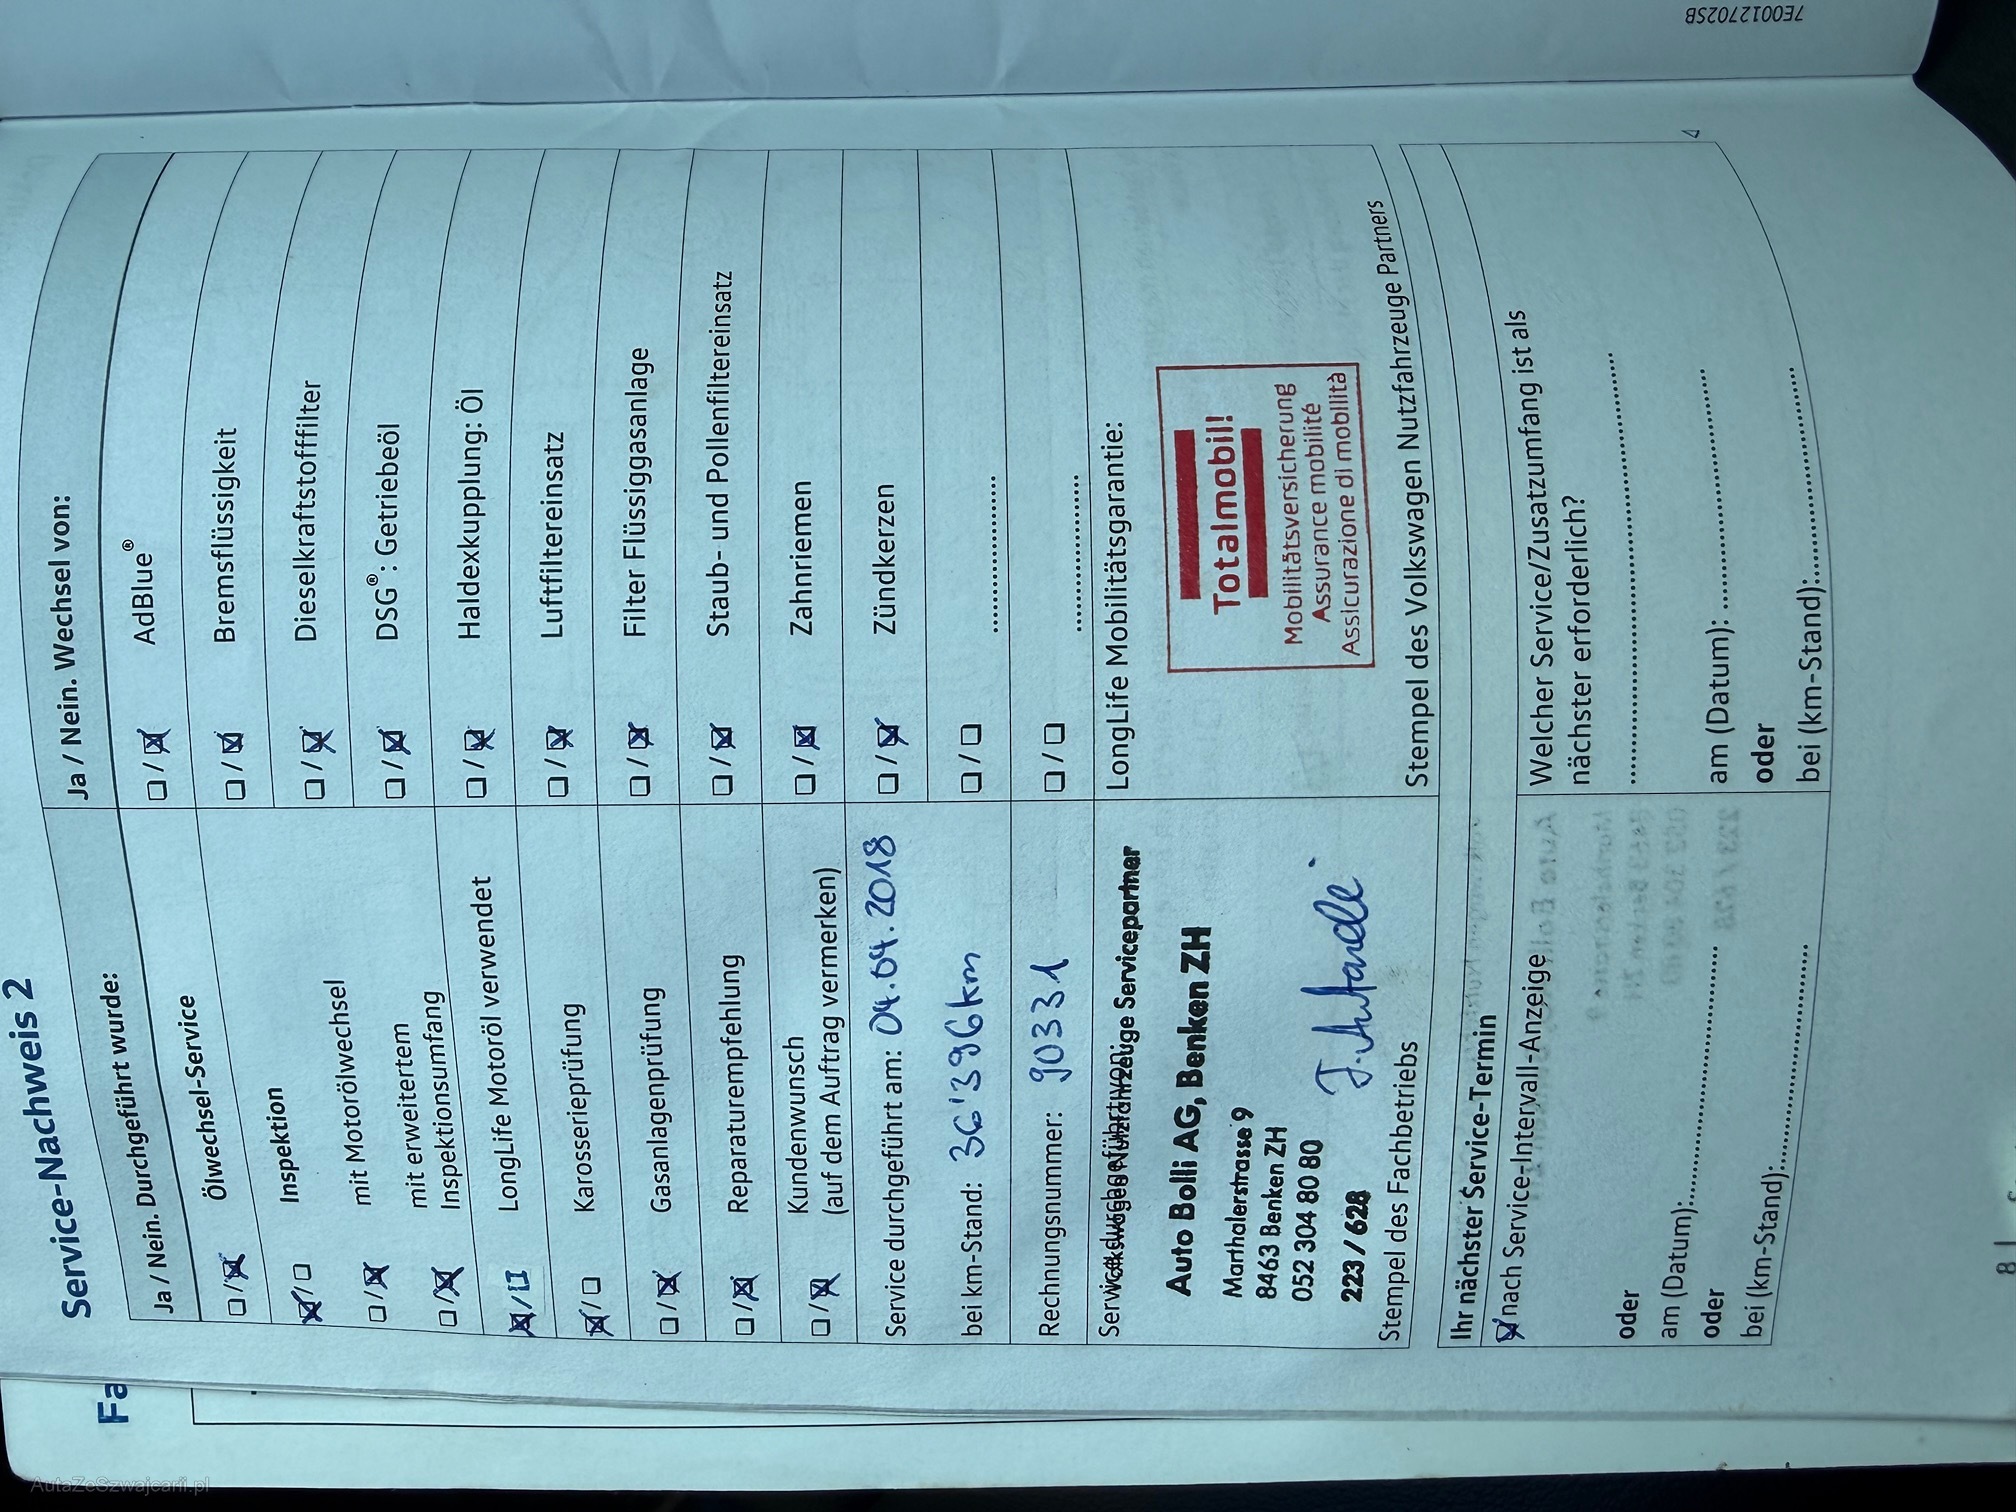 7E0012702SB
Fa
Service-Nachweis 2
Ja / Nein. Durchgeführt wurde:
☐/☒ Ölwechsel-Service
☒/☐ Inspektion
☐/☒ mit Motorölwechsel
☐/☒ mit erweitertem
Inspektionsumfang
☒/☐ LongLife Motoröl verwendet
☒/☐ Karosserieprüfung
☐/☒ Gasanlagenprüfung
☐/☒ Reparaturempfehlung
☐/☒ Kundenwunsch
(auf dem Auftrag vermerken)
Service durchgeführt am: 04.04.2018
bei km-Stand: 36'396km
Rechnungsnummer: 90331
Service durchgeführt von:
Volkswagen Nutzfahrzeuge Servicepartner
Auto Bolli AG, Benken ZH
Marthalerstrasse 9
8463 Benken ZH
052 304 80 80
223 / 628
Stempel des Fachbetriebs
Ja / Nein. Wechsel von:
☐/☒ AdBlue®
☐/☒ Bremsflüssigkeit
☐/☒ Dieselkraftstofffilter
☐/☒ DSG®: Getriebeöl
☐/☒ Haldexkupplung: Öl
☐/☒ Luftfiltereinsatz
☐/☒ Filter Flüssiggasanlage
☐/☒ Staub- und Pollenfiltereinsatz
☐/☒ Zahnriemen
☐/☒ Zündkerzen
☐/☐ ....................
☐/☐ ....................
LongLife Mobilitätsgarantie:
Totalmobil!
Mobilitätsversicherung
Assurance mobilité
Assicurazione di mobilità
Stempel des Volkswagen Nutzfahrzeuge Partners
Ihr nächster Service-Termin
☒ nach Service-Intervall-Anzeige
oder
am (Datum):....................
oder
bei (km-Stand):....................
Welcher Service/Zusatzumfang ist als
nächster erforderlich?
....................
am (Datum): ....................
oder
bei (km-Stand):....................
8
AutaZeSzwajcarii.pl